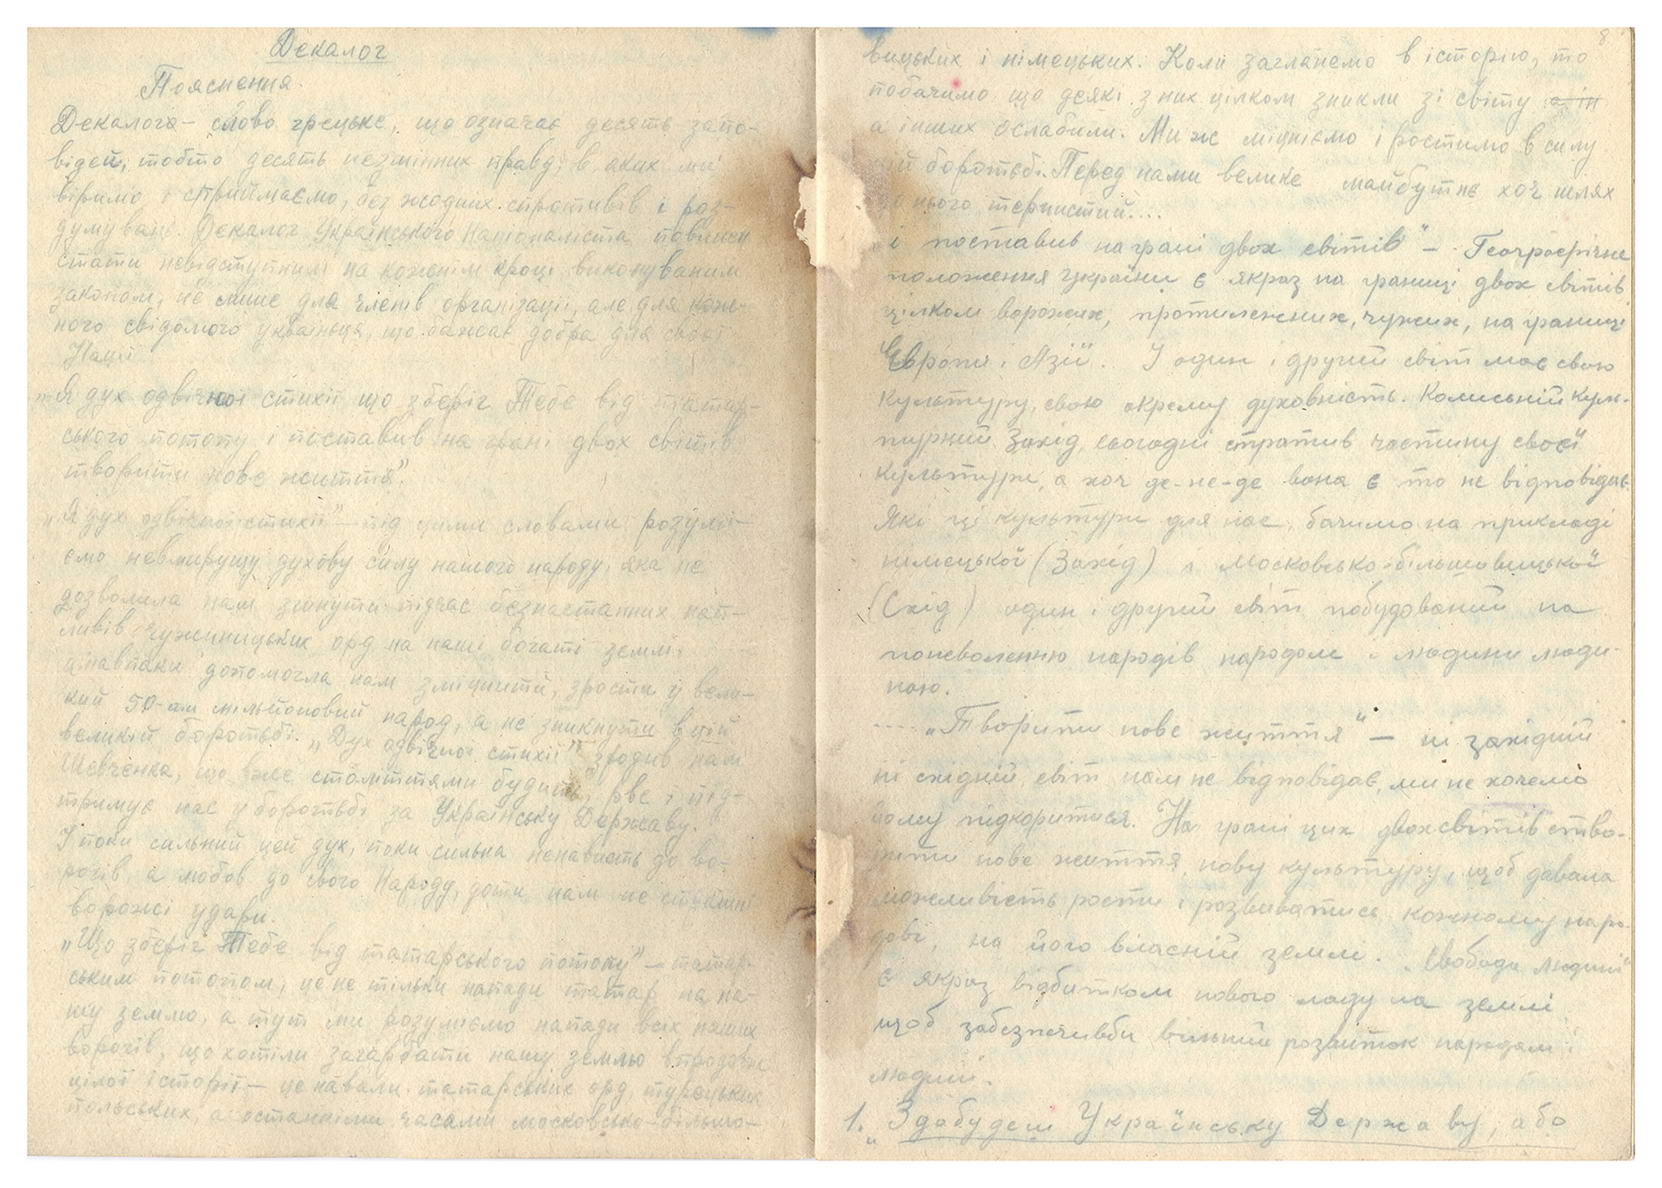 Декалог
Пояснення.
Декалог – слово грецьке, що означає десять запо-
відей, тобто десять незмінних правд, в яких ми
віримо і сприймаємо, без жодних спротивів і роз-
думувань. Декалог Українського Націоналіста повинен
стати невідступним на кожнім кроці виконуваним
законом, не лише для членів організації, але для кож-
ного свідомого українця, що бажає добра для своєї
Нації
„Я дух одвічної стихії що зберіг Тебе від татар-
ського потопу і поставив на грані двох світів
творити нове життя”.
„Я дух одвічної стихії” – під цими словами розумі-
ємо невмирущу духову силу нашого народу, яка не
дозволила нам згинути підчас безнастанних нап-
ливів чужиницьких орд на наші богаті землі,
а навпаки допомогла нам зміцнити, зрости у вели-
кий 50-ти мільйоновий народ, а не зникнути в цій
великій боротьбі. „Дух одвічної стихії” зродив нам
Шевченка, що вже століттями будить, рве і під-
тримує нас у боротьбі за Українську Державу.
І поки сильний цей дух, поки сильна ненависть до во-
рогів, а любов до свого Народу, доти нам не страшні
ворожі удари.
„Що зберіг Тебе від татарського потопу” – татар-
ським потопом, це не тільки напади татар на на-
шу землю, а тут ми розуміємо напади всіх наших
ворогів, що хотіли загарбати нашу землю впродовж
цілої історії – це навали татарських орд, турецьких
польських, а останніми часами московсько-більшо-
8
вицьких і німецьких. Коли заглянемо в історію, то
побачимо що деякі з них цілком зникли зі світу а ін
а інших ослабили. Ми ж міцніємо і ростимо в силу
цій боротьбі. Перед нами велике майбутнє хоч шлях
до нього тернистий....
„і поставив на грані двох світів” – Географічне
положення України є якраз на границі двох світів
цілком ворожих, протилежних, чужих, на границі
Європи і Азії. І один і другий світ має свою
культуру, свою окрему духовність. Колишній куль-
турний Захід, сьогодні стратив частину своєї
культури, а хоч де-не-де вона є то не відповідає.
Які ці культури для нас, бачимо на прикладі
німецької (Захід) і московсько-більшовицької
(Схід) один і другий світ побудований на
поневоленню народів народом і людини люди-
ною.
.... „Творити нове життя” – ні західній
ні східній світ нам не відповідає, ми не хочемо
йому підкоритися. На грані цих двох світів ство-
рити нове життя, нову культуру, щоб давала
можливість рости і розвиватись кожному наро-
дові, на його власній землі. „Свобода людині”
є якраз відбитком нового ладу на землі
щоб забезпечивби вільний розвиток народам і
людині.
1. „Здобудеш Українську Державу, або